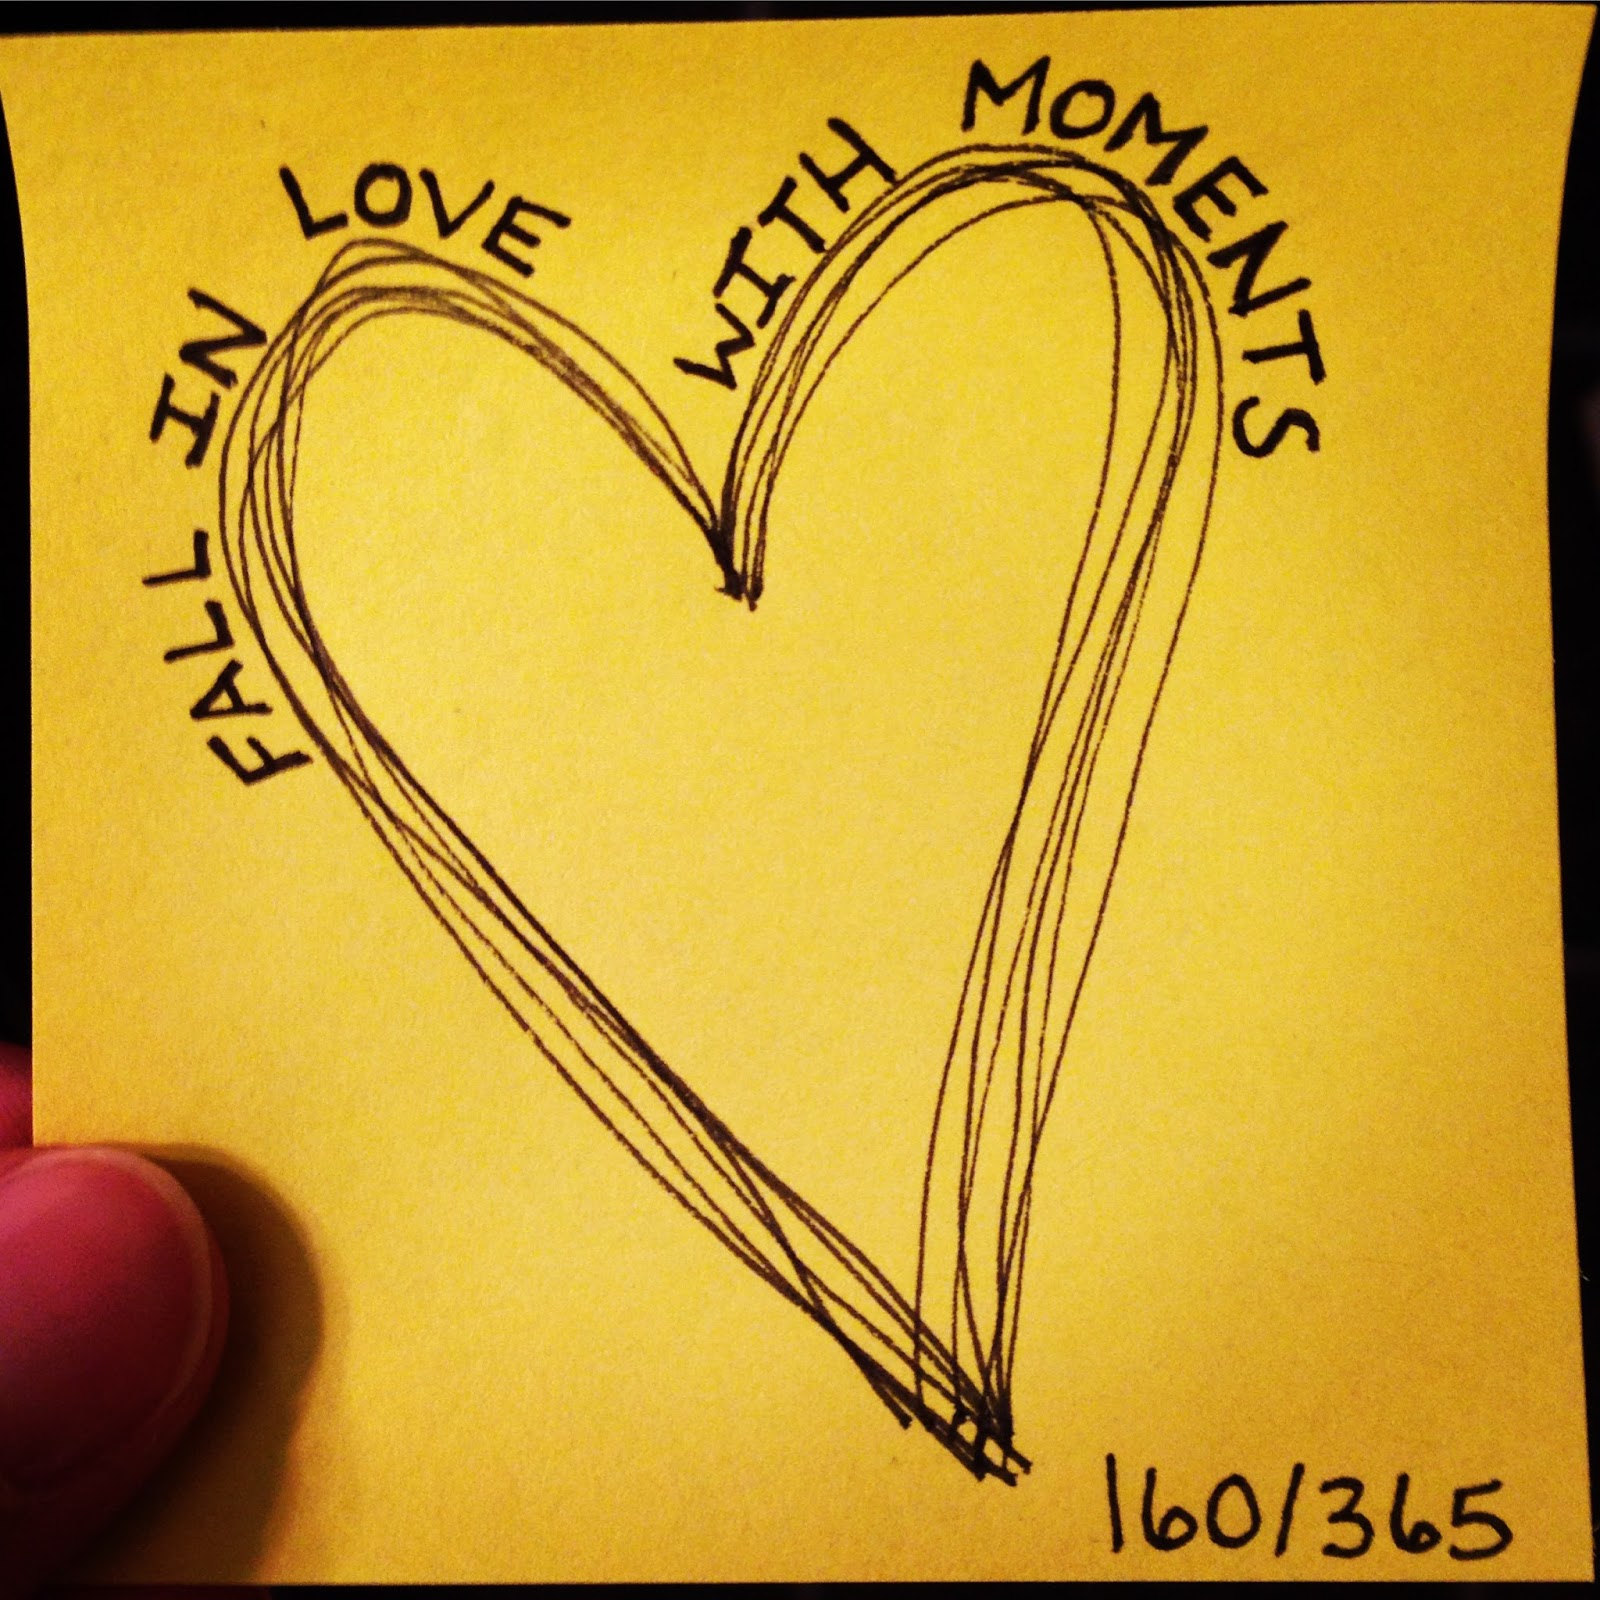 FALL IN LOVE WITH MOMENTS
160/365